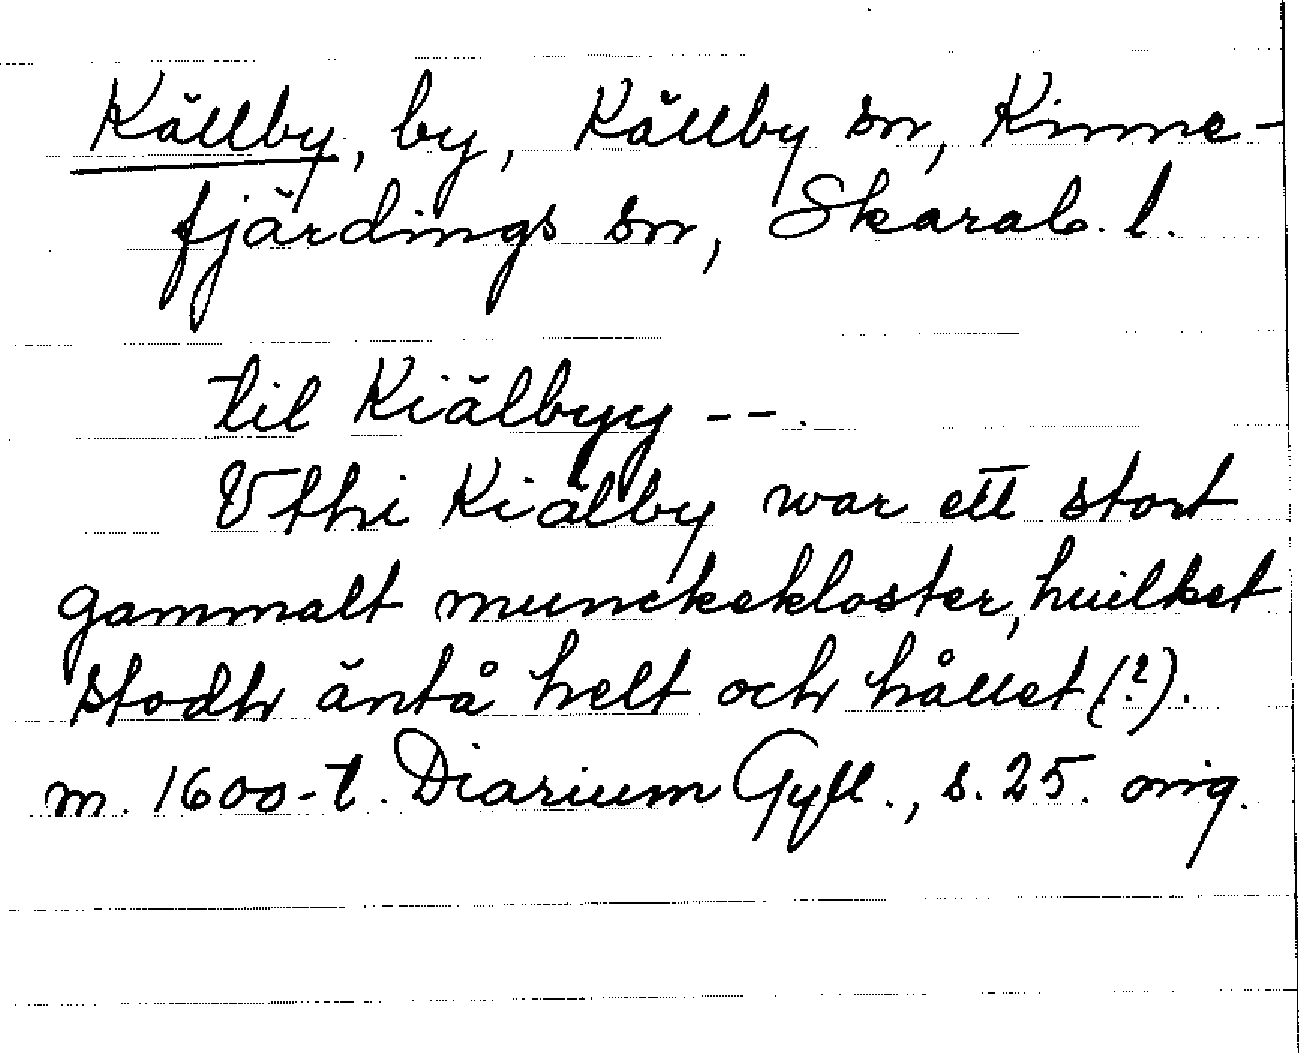 Källby, by, Källby sn, Kinne-
fjärdings sn, Skarab. l.
til Kiälbyy --.
Vthi Kiälby war ett stort
gammalt munckekloster, huilket
stodh äntå helt och hållet (?).
m. 1600-t. Diarium Gyll., s. 25. orig.